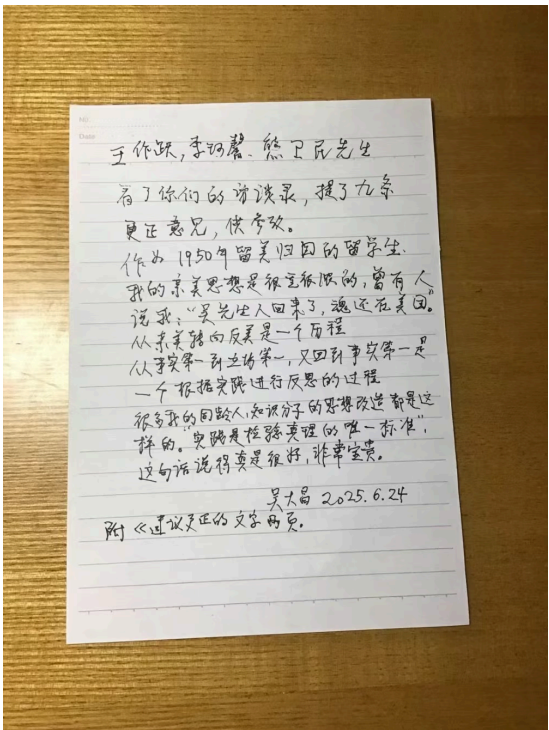 No.
Date
王作跃,李珂馨、熊卫民先生
看了你们的访谈录,提了九条
更正意见,供参改。
作为1950年留美归国的留学生、
我的亲美思想是很重很浓的,曾有人
说我:“吴先生人回来了,魂还在美国。”
从亲美转向反美是一个历程
从事实第一到立场第一,又回到事实第一是
一个根据实践进行反思的过程
很多我的同龄人,知识分子的思想改造都是这
样的。“实践是检验真理的唯一标准”,
这句话说得真是很好,非常宝贵。
吴大昌 2025.6.24
附《建议更正的文字两页。